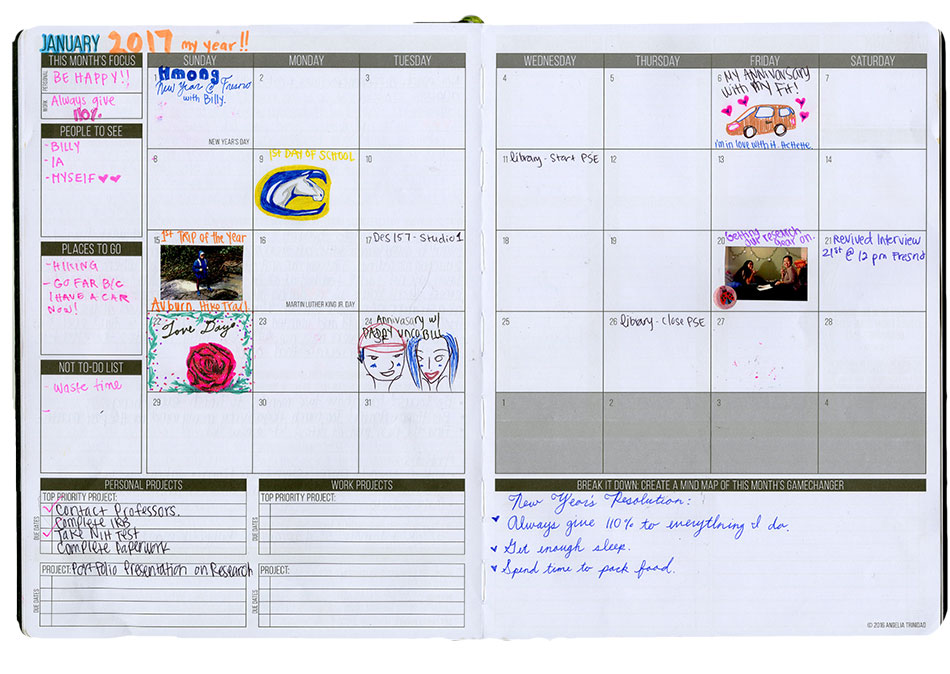 JANUARY 2017 my year!!
THIS MONTH'S FOCUS
PERSONAL
BE HAPPY!!
WORK
Always give
110%
PEOPLE TO SEE
- BILLY
- IA
- MYSELF
PLACES TO GO
- HIKING
- GO FAR B/C
I HAVE A CAR
NOW!
NOT TO-DO LIST
- waste time
-
SUNDAY MONDAY TUESDAY WEDNESDAY THURSDAY FRIDAY SATURDAY
1
Hmong
New Year @ Fresno
with Billy.
NEW YEAR'S DAY
2
3
4
5
6
MY ANNIVERSARY
WITH MY FIT!
i'm in love with it.
7
8
9
1ST DAY OF SCHOOL
10
11 library - Start PSE
12
13
14
15
1st TRIP of the YEAR
Auburn Hike Trail
16
MARTIN LUTHER KING JR. DAY
17 Des 157 - Studio 1
18
19
20
Getting our research
gear on.
21 Revived Interview
21st @ 12 pm Fresno
22
Love Days
23
24 Annivasary w/
25
26 library - Close PSE
27
28
29
30
31
1
2
3
4
PERSONAL PROJECTS
TOP PRIORITY PROJECT:
DUE DATES
Contact Professors.
Complete IRB
Take NIH Test
Complete Paperwork
PROJECT: Portfolio Presentation on Research
DUE DATES
WORK PROJECTS
TOP PRIORITY PROJECT:
DUE DATES
PROJECT:
DUE DATES
BREAK IT DOWN: CREATE A MIND MAP OF THIS MONTH'S GAMECHANGER
New Year's Resolution:
Always give 110% to everything I do.
Get enough sleep.
Spend time to pack food.
© 2016 ANGELIA TRINIDAD